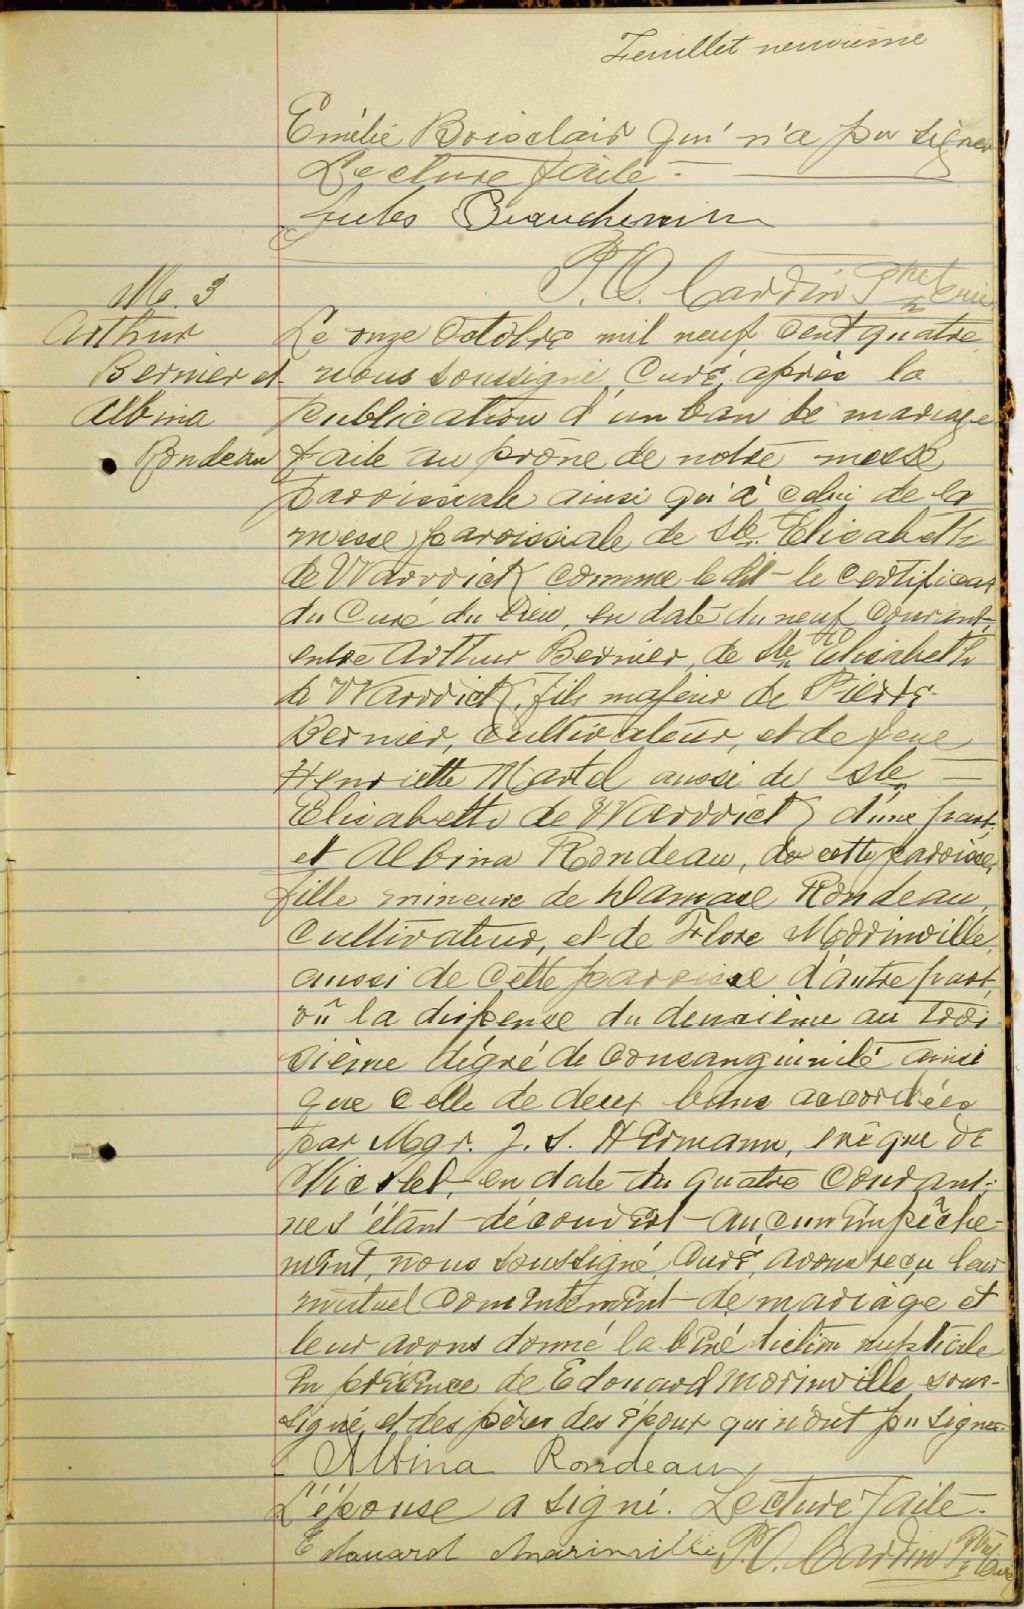 Feuillet neuvième
Emélie Boisclair qui n'a pu signer
Lecture faite.
Jules Beauchemin
P. O. Cardin Ptre Curé
M. 3
Arthur
Bernier et
Albina
Rondeau
Le onze Octobre mil neuf cent quatre
nous soussigné, Curé, après la
publication d'un ban de mariage
faite au prône de notre messe
paroissiale ainsi qu'à celui de la
messe paroissiale de Ste Elisabeth
de Warwick comme le dit le certificat
du Curé du lieu, en date du neuf courant,
entre Arthur Bernier, de Ste Elisabeth
de Warwick, fils majeur de Pierre
Bernier, cultivateur, et de feue
Henriette Martel aussi de Ste
Elisabeth de Warwick d'une part,
et Albina Rondeau, de cette paroisse,
fille mineure de Damase Rondeau,
cultivateur, et de Flore Morinville,
aussi de cette paroisse d'autre part,
vû la dispense du deuxième au troi
sième dégré de consanguinité ainsi
que celle de deux bans accordées
par Mgr. J. S. Hermann, évêque de
Nicolet, en date du quatre courant;
ne s'étant découvert aucun empêche-
ment, nous soussigné, Curé, avons reçu leur
mutuel consentement de mariage et
leur avons donné la bénédiction nuptiale
en présence de Edouard Morinville sous-
signé et des pères des époux qui n'ont pu signer.
Albina Rondeau
L'épouse a signé. Lecture faite.
Edouard Marinville P. O. Cardin Ptre Curé